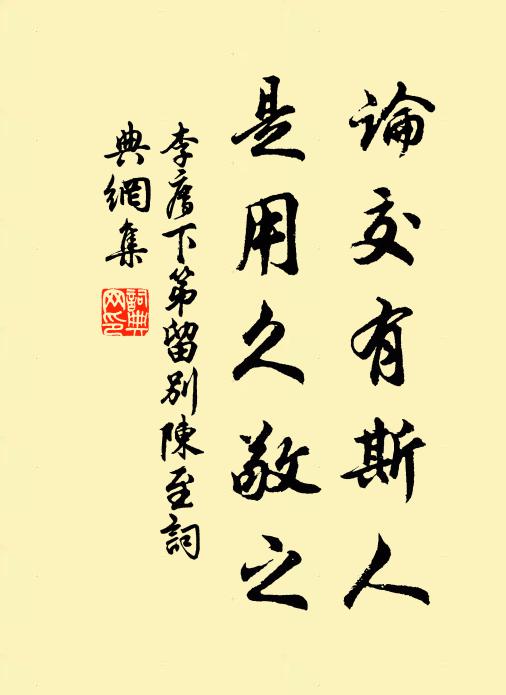 論交有斯人
是用久敬之
李廌下第留別陳至詞
典網集
詞典
网印